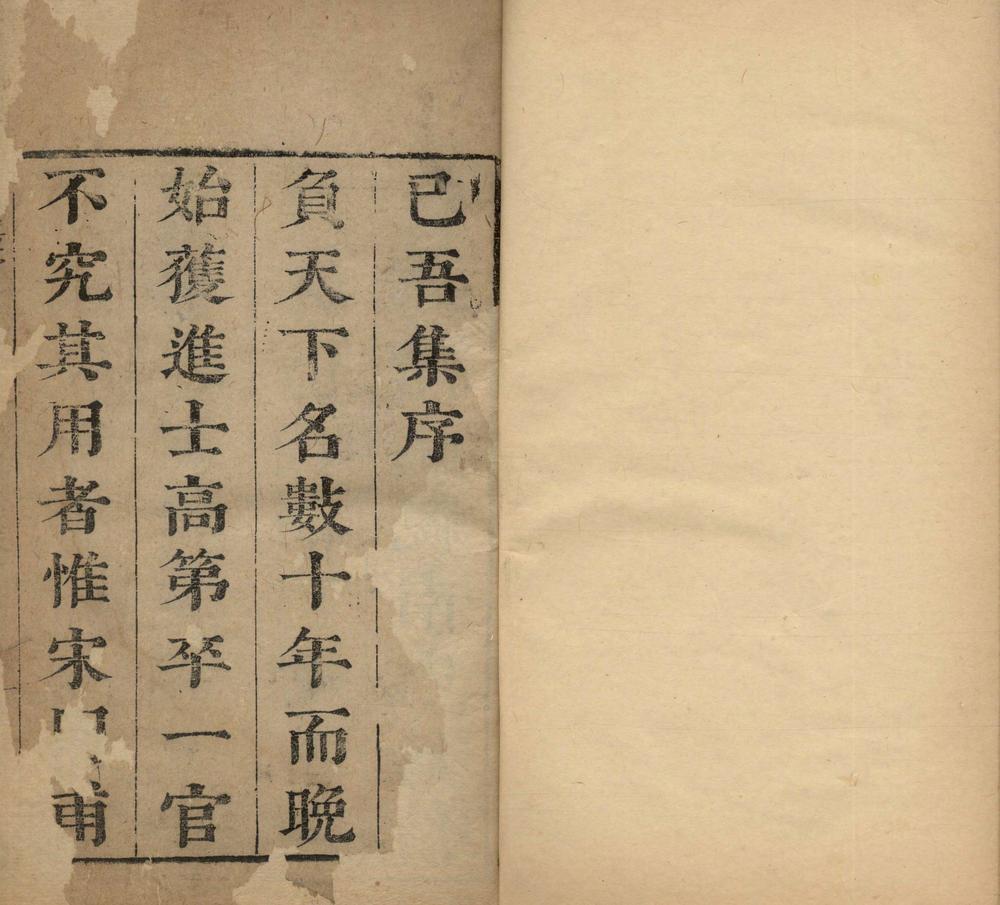 已吾集序
負天下名數十年而晩
始獲進士高第卒一官
不究其用者惟宋甫